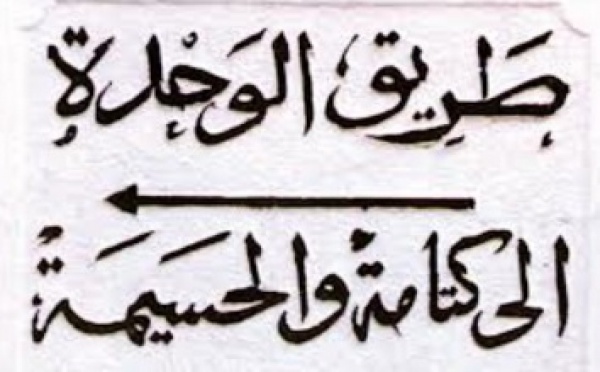 طَرِيق الوَحْدة
الى كتامة والحسَيمَة